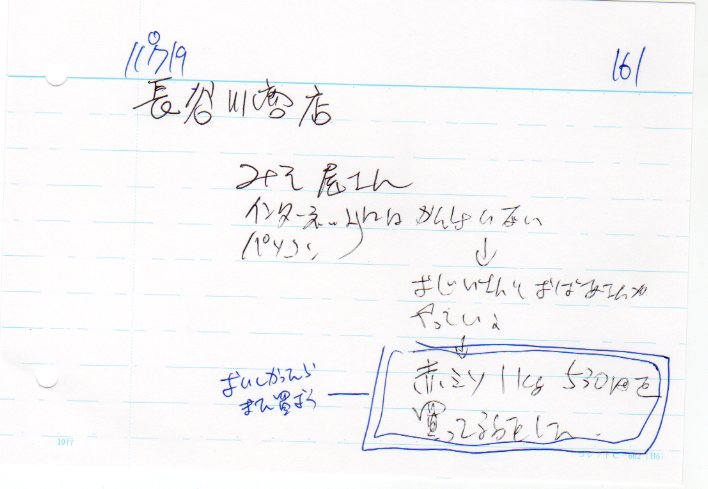 161
長谷川商店
みそ屋さん
インターネットには かんけいない
パソコン
↓
おじいさんと おばあさんが
やっている
↓
赤ミソ 1kg 530円を
買って
おいしかったら
また買おう
10行